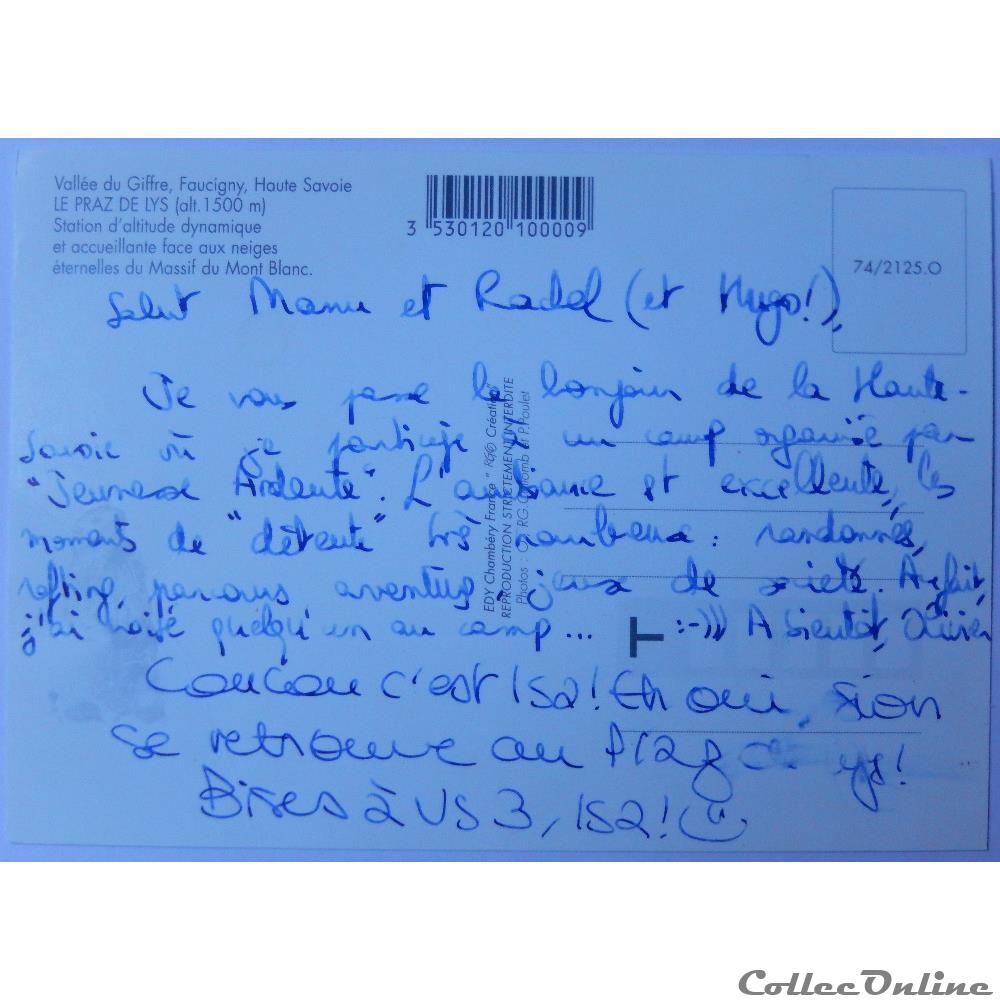 Vallée du Giffre, Faucigny, Haute Savoie
LE PRAZ DE LYS (alt.1500 m)
Station d'altitude dynamique
et accueillante face aux neiges
éternelles du Massif du Mont Blanc.
3 530120 100009
74/2125.O
Salut Manu et Rachel (et Hugo!),
Je vous passe le bonjour de la Haute-
Savoie où je participe à un camp organisé par
"Jeunesse Ardente". L'ambiance est excellente, les
moments de "détente" très nombreux : randonnées,
rafting, parcours aventure, jeux de société. Au fait,
j'ai croisé quelqu'un au camp... :-))) A bientôt, Olivier
Coucou c'est ISA! Eh oui, si on
se retrouve au Praz de Lys!
Bises à VS 3, ISA!
EDY Chambéry France " RG© Création"
REPRODUCTION STRICTEMENT INTERDITE
Photos : RG. Colomb et P. Poulet
CollecOnline